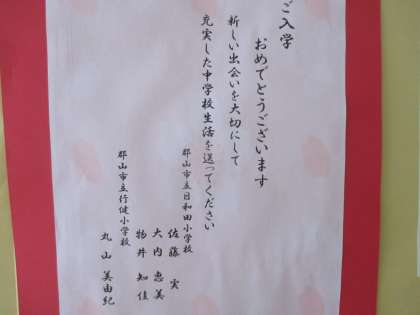 ご入学
おめでとうございます
新しい出会いを大切にして
充実した中学校生活を送ってください
郡山市立日和田小学校
佐藤 実
大内 恵美
物井 知佳
郡山市立行健小学校
丸山 美由紀